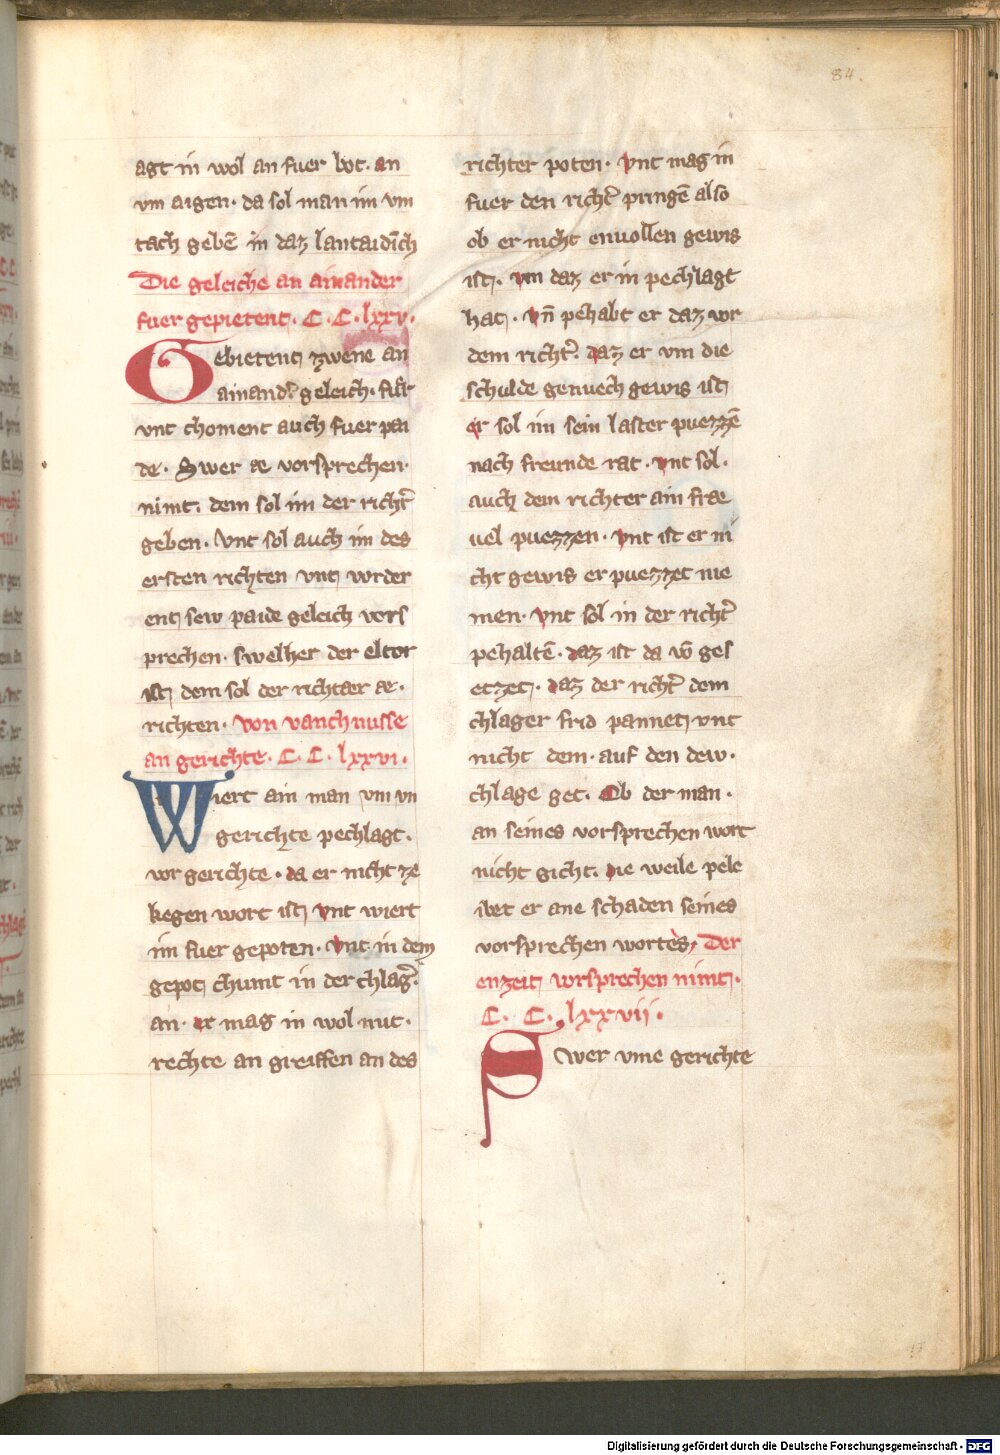 84.
agt in wol an fuer bot. an
vm aigen. da sol man im vm
tach gebē in daz lantaidīch
Die geleiche an ainander
fuer gepietent. C. C. lxxv.
Gebietent zwene an
ainand̾ geleich. fuͤr
vnt choment auch fuer pai
de. Swer ae vorsprechen.
nimt. dem sol im der richt̾
geben. Vnt sol auch im des
ersten richten vnt vorder
ent sew paide geleich vers
prechen. swelher der eltor
ist dem sol der richtaer ae.
richten. von vanchnusse
an gerichte. C. C. lxxvi.
Wiert ain man vm vn
gerichte pechlagt.
vor gerichte. da er nicht ze
kegen wort ist vnt wiert
im fuer gepoten. vnt in dem
gepot chumt in der chlag̾.
an. er mag in wol mit.
rechte an greiffen an des
richter poten. vnt mag in
fuer den richt̾ pringē also
ob er nicht envollen gewis
ist. vm daz er in pechlagt
hat. vn̄ pehabt er daz vor
dem richt̾. daz er vm die
schulde genuech gewis ist
er sol im sein laster puezzē
nach freunde rat. vnt sol.
auch dem richter ain frae
uel puezzen. vnt ist er ni
cht gewis er puezzet nie
men. vnt sol in der richt̾
pehaltē. daz ist da vō ges
etzet. daz der richt̾ dem
chlager frid pannet vnt
nicht dem. auf den dew.
chlage get. Ob der man.
an seines vorsprechen wort
nicht gicht. die weile pele
ibet er ane schaden seines
vorsprechen wortes, Der
enzeit vorsprechen nimt.
C. C. lxxvii.
Swer vme gerichte
Digitalisierung gefördert durch die Deutsche Forschungsgemeinschaft - DFG